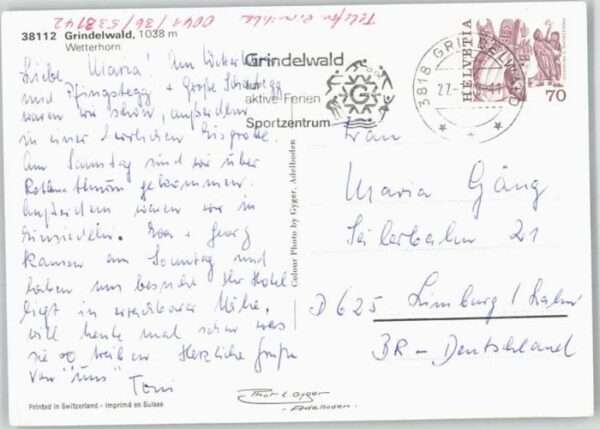 Telefon 0041/36/538142
38112 Grindelwald, 1038 m
Wetterhorn
Liebe Maria! Am
und Pfingstegg + Große Scheidegg
waren wir schon, außerdem
in einer herrlichen Eisgrotte.
Am Samstag sind wir über
Rothenthurm gekommen.
Außerdem waren wir in
Einsiedeln. + Georg
kamen am Sonntag und
haben uns besucht. Ihr Hotel
liegt in erreichbarer Nähe,
will heute mal sehen was
sie so treiben. Herzliche Grüße
von "uns" Toni
Grindelwald
für
aktive Ferien
Sportzentrum
G
3818 GRINDELWALD
HELVETIA
70
Frau
Maria Gäng
Seilerbahn 21
D 625 Limburg / Lahn
BR - Deutschland
Colour Photo by Gyger, Adelboden
Printed in Switzerland - Imprimé en Suisse
Photo E. Gyger
Adelboden